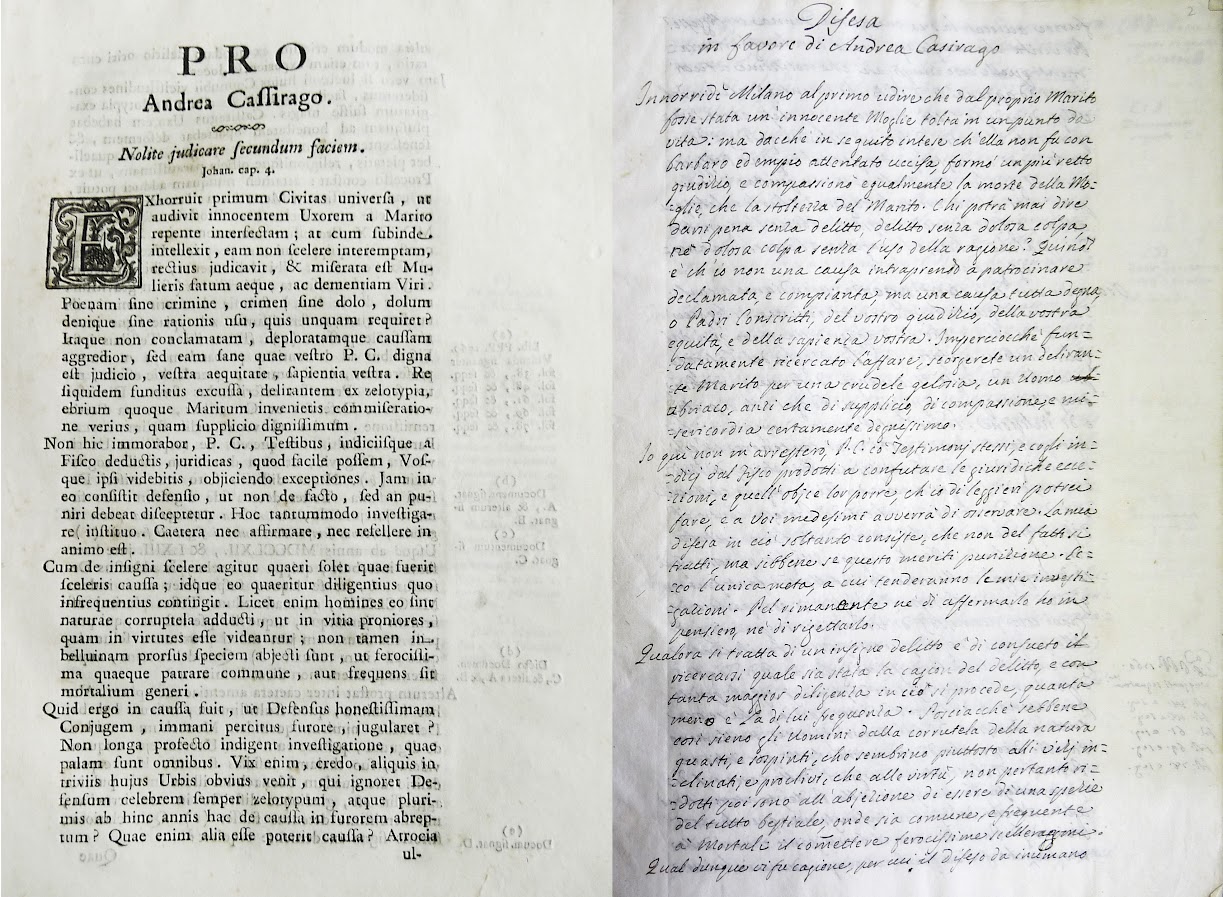 PRO
Andrea Cassirago.
Nolite judicare secundum faciem.
Johan. cap. 4.
EXhorruit primum Civitas universa, ut
audivit innocentem Uxorem a Marito
repente intersectam; at cum subinde
intellexit, eam non scelere interemptam,
rectius judicavit, & miserata est Mu-
lieris fatum aeque, ac dementiam Viri.
Poenam sine crimine, crimen sine dolo, dolum
denique sine rationis usu, quis unquam requiret?
Itaque non conclamatam, deploratamque caussam
aggredior, sed eam sane quae vestro P. C. digna
est judicio, vestra aequitate, sapientia vestra. Re
siquidem funditus excussa, delirantem ex zelotypia,
ebrium quoque Maritum invenietis commiseratio-
ne verius, quam supplicio dignissimum.
Non hic immorabor, P. C., Testibus, indiciisque a
Fisco deductis, juridicas, quod facile possem, Vos-
que ipsi videbitis, objiciendo exceptiones. Jam in
eo consistit defensio, ut non de facto, sed an pu-
niri debeat disceptetur. Hoc tantummodo investiga-
re instituo. Caetera nec affirmare, nec refellere in
animo est.
Cum de insigni scelere agitur quaeri solet quae fuerit
sceleris caussa; idque eo quaeritur diligentius quo
infrequentius contingit. Licet enim homines eo sint
naturae corruptela adducti, ut in vitia proniores,
quam in virtutes esse videantur; non tamen in
belluinam prorsus speciem abjecti sunt, ut ferocissi-
ma quaeque patrare commune, aut frequens sit
mortalium generi.
Quid ergo in caussa fuit, ut Defensus honestissimam
Conjugem, immani percitus furore, jugularet?
Non longa profecto indigent investigatione, quae
palam sunt omnibus. Vix enim, credo, aliquis in
triviis hujus Urbis obvius venit, qui ignoret De-
fensum celebrem semper zelotypum, atque pluri-
mis ab hinc annis hac de caussa in furorem abrep-
tum? Quae enim alia esse poterit caussa? Atrocia
ul-
2
Difesa
in favore di Andrea Casirago
Innorridì Milano al primo udire che dal proprio Marito
fosse stata un' innocente Moglie tolta in un punto da
vita: ma dacchè in seguito intese ch' ella non fu con
barbaro ed empio attentato uccisa, formò un più retto
giudizio, e compassionò egualmente la morte della Mo=
=glie, che la stoltezza del Marito. Chi potrà mai dire
darsi pena senza delitto, delitto senza dolosa colpa,
nè dolosa colpa senza l'uso della ragione? Quindi
è ch' io non una causa intraprendo a patrocinare
declamata, e compianta, ma una causa tutta degna,
o Padri Conscritti, del vostro giudizio, della vostra
equità, e della sapienza vostra. Imperciocchè fun=
=datamente ricercato l'affare, scorgerete un deliran=
=te Marito per una crudele gelosia, un Uomo
abriaco, anzi che di supplicio, di compassione, e mi=
=sericordia certamente degnissimo.
Io quì non m'arresterò, P.C. co' Testimonj stessi, e cogli in=
=dizj dal Fisco prodotti a confutare le giuridiche ecce=
=zioni, e quell' objce lor porre, ch'io di leggieri potrei
fare, e a Voi medesimi avverrà di osservare. La mia
difesa in ciò soltanto consiste, che non del fatto si
tratti, ma sibbene se questo meriti punizione. Ec=
=co l'unica meta, a cui tenderanno le mie investi=
=gazioni. Pel rimanente nè di affermarlo ho in
pensiero, nè di rigettarlo.
Qualora si tratta di un' insigne delitto è di consueto il
ricercarsi quale sia stata la cagion del delitto, e con
tanta maggior diligenza in ciò si procede, quanta
meno è la di lui frequenza. Posciacchè sebbene
così sieno gli Uomini dalla corrutela della natura
guasti, e sospinti, che sembrino piuttosto alli vizj in=
=clinati, e proclivi, che alle virtù, non pertanto ri=
=dotti poi sono all' abjezione di essere di una spezie
del tutto bestiale, onde sia comune, e frequente
a' Mortali il comettere ferocissime scelleragini.
Qual dunque vi fu cagione, per cui il difeso da inumano